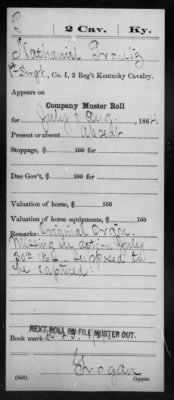 P 2 Cav. Ky.
Nathaniel
1st Serg't, Co. I, 2 Reg't Kentucky Cavalry.
Appears on
Company Muster Roll
for July & Aug., 1862.
Present or absent Absent
Stoppage, $ 100 for
Due Gov't, $ 100 for
Valuation of horse, $ 100
Valuation of horse equipments, $ 100
Remarks: Original Orgn.
Missing in action July
30th 1862. Supposed to
be captured.
NEXT ROLL ON FILE MUSTER OUT.
Book mark
Grogan
(356) Copyist.